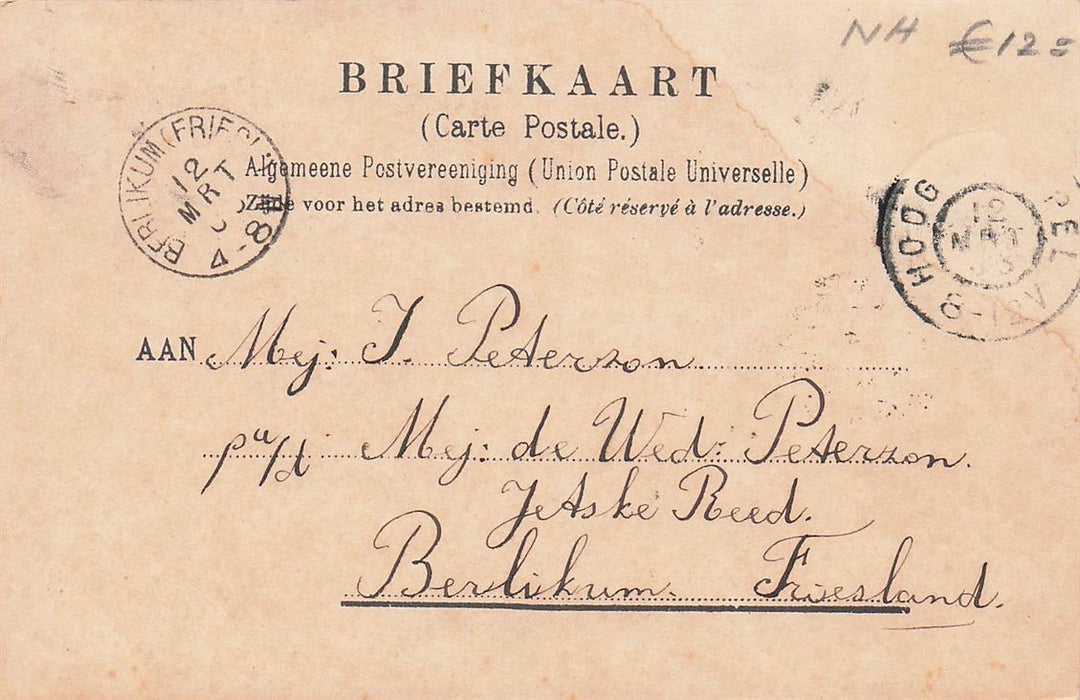 NH €12=
BRIEFKAART
(Carte Postale.)
Algemeene Postvereeniging (Union Postale Universelle)
Zijde voor het adres bestemd. (Côté réservé à l'adresse.)
BERLIKUM (FRIESL
12
MRT
4-8
HOOG PEL
12
MRT
8-12V
AAN Mej: J. Peterzon
p/a Mej: de Wed: Peterzon.
Jetske Reed.
Berlikum. Friesland.